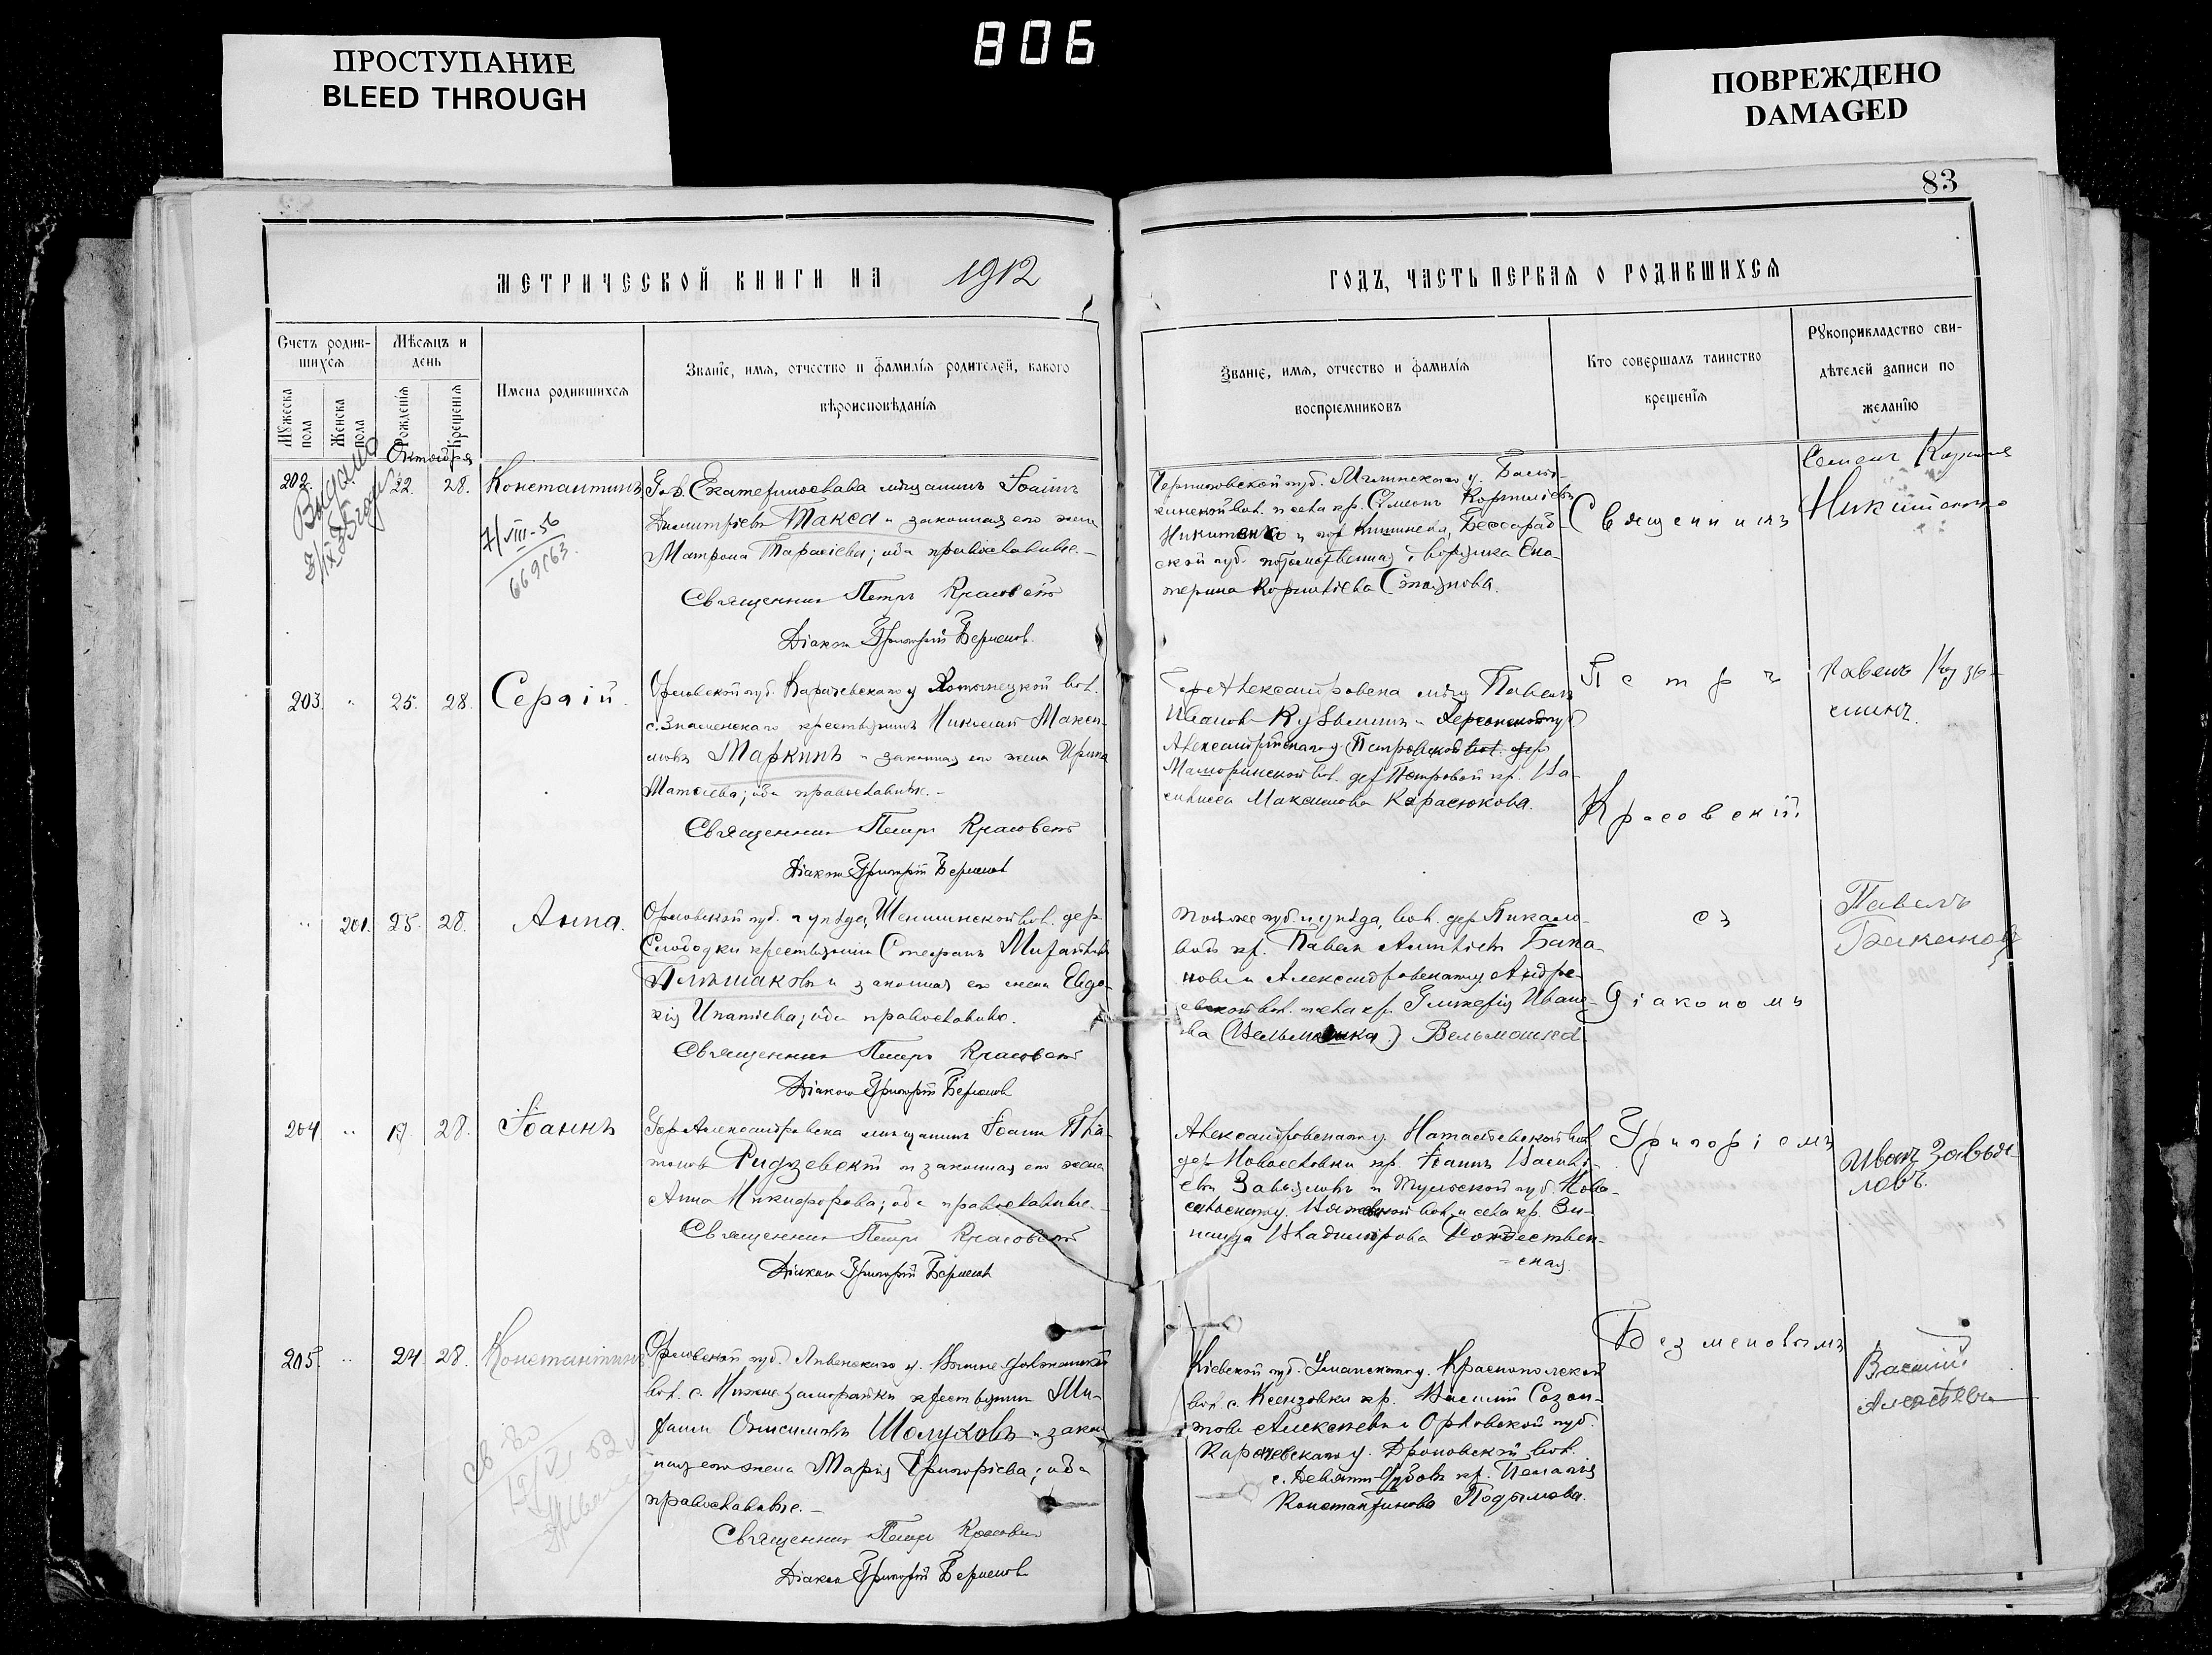 806
ПРОСТУПАНИЕ
BLEED THROUGH
ПОВРЕЖДЕНО
DAMAGED
83
МЕТРИЧЕСКОЙ КНИГИ НА 1912
ГОДЪ, ЧАСТЬ ПЕРВАЯ О РОДИВШИХСЯ
Счетъ родив-
шихся
Мужеска пола
Женска пола
Мѣсяцъ и
день
Рожденія
Крещенія
Имена родившихся
Званіе, имя, отчество и фамилія родителей, какого
вѣроисповѣданія
Званіе, имя, отчество и фамилія
воспріемниковъ
Кто совершалъ таинство
крещенія
Рукоприкладство сви-
дѣтелей записи по
желанію
Октября
202. 22. 28. Константинъ
7/VIII-56
669163
Гор. Екатеринослава мѣщанинъ Іоаннъ
Димитріевъ Такса и законная его жена
Матрона Тарасіева; оба православные.-
Священникъ Петръ Красовскій
Діаконъ Григорій
Черниговской губ. Мглинскаго у.
села кр. Симеонъ Корниліевъ
Никитенко и гор Кишинева, Бессараб-
ской губ. потомственная дворянка Ека-
терина Корниліева Стоянова.
Священникъ
Никитенко
203. " 25. 28. Сергій.
Орловской губ. Карачевскаго у Хотынецкой вол.
с. Знаменскаго крестьянинъ Николай Макси-
мовъ Маркинъ и законная его жена Ирина
Матѳіева; оба православные.-
Священникъ Петръ Красовскій
Діаконъ Григорій
Гор Александровска мѣщ Павелъ
Ивановъ Кузьминъ и Херсонской губ
Александрійскаго у. Петровской вол. дер
дер Петровой кр. Ва-
силисса Максимова Карасюкова.
Петръ
Красовскій
Павелъ Кузь-
минъ.
" 201. 25. 28. Анна.
Орловской губ. и уѣзда, Шеншинской вол. дер
Слободки крестьянинъ Стефанъ
и законная его жена Евдо-
кія Ипатіева; оба православные.
Священникъ Петръ Красовскій
Діаконъ Григорій
той же губ. и уѣзда, вол. дер
кр. Павелъ Бака-
новъ и Александровскаго у, Андре-
евской вол. и села кр. Гликерія Ивано-
ва Вельмошка
съ
Діакономъ
Павелъ
Бакановъ
204 " 19. 28. Іоаннъ
Гор Александровска мѣщанинъ Іоаннъ Пла-
тоновъ Ридзевскій и законная его жена
Анна Никифорова; оба православные.-
Священникъ Петръ Красовскій
Діаконъ Григорій
Александровскаго у. Наталіевской вол.
дер Новоселовки кр. Іоаннъ Василі-
евъ Завьяловъ и Тульской губ. Ново-
сильскаго у. вол. и села кр. Зи-
наида Владимірова Рождествен-
ская.
Григоріемъ
Иванъ Завья-
ловъ.
205. " 24 28. Константинъ
Орловской губ. Ливенскаго у.
вол. с. крестьянинъ Ми-
хаилъ Онисимовъ Шолуховъ и закон
ная его жена Марія Григоріева; оба
православные.-
Священникъ Петръ Красовскій
Діаконъ Григорій
Кіевской губ. Уманскаго у. Краснопольской
вол. с. кр. Василій Созон-
товъ Алексѣевъ и Орловской губ.
Карачевскаго у. Дроновской вол.
с. Девять-Дубовъ кр. Пелагія
Константинова Подымова.
Безменовымъ
Василій
Алексѣевъ